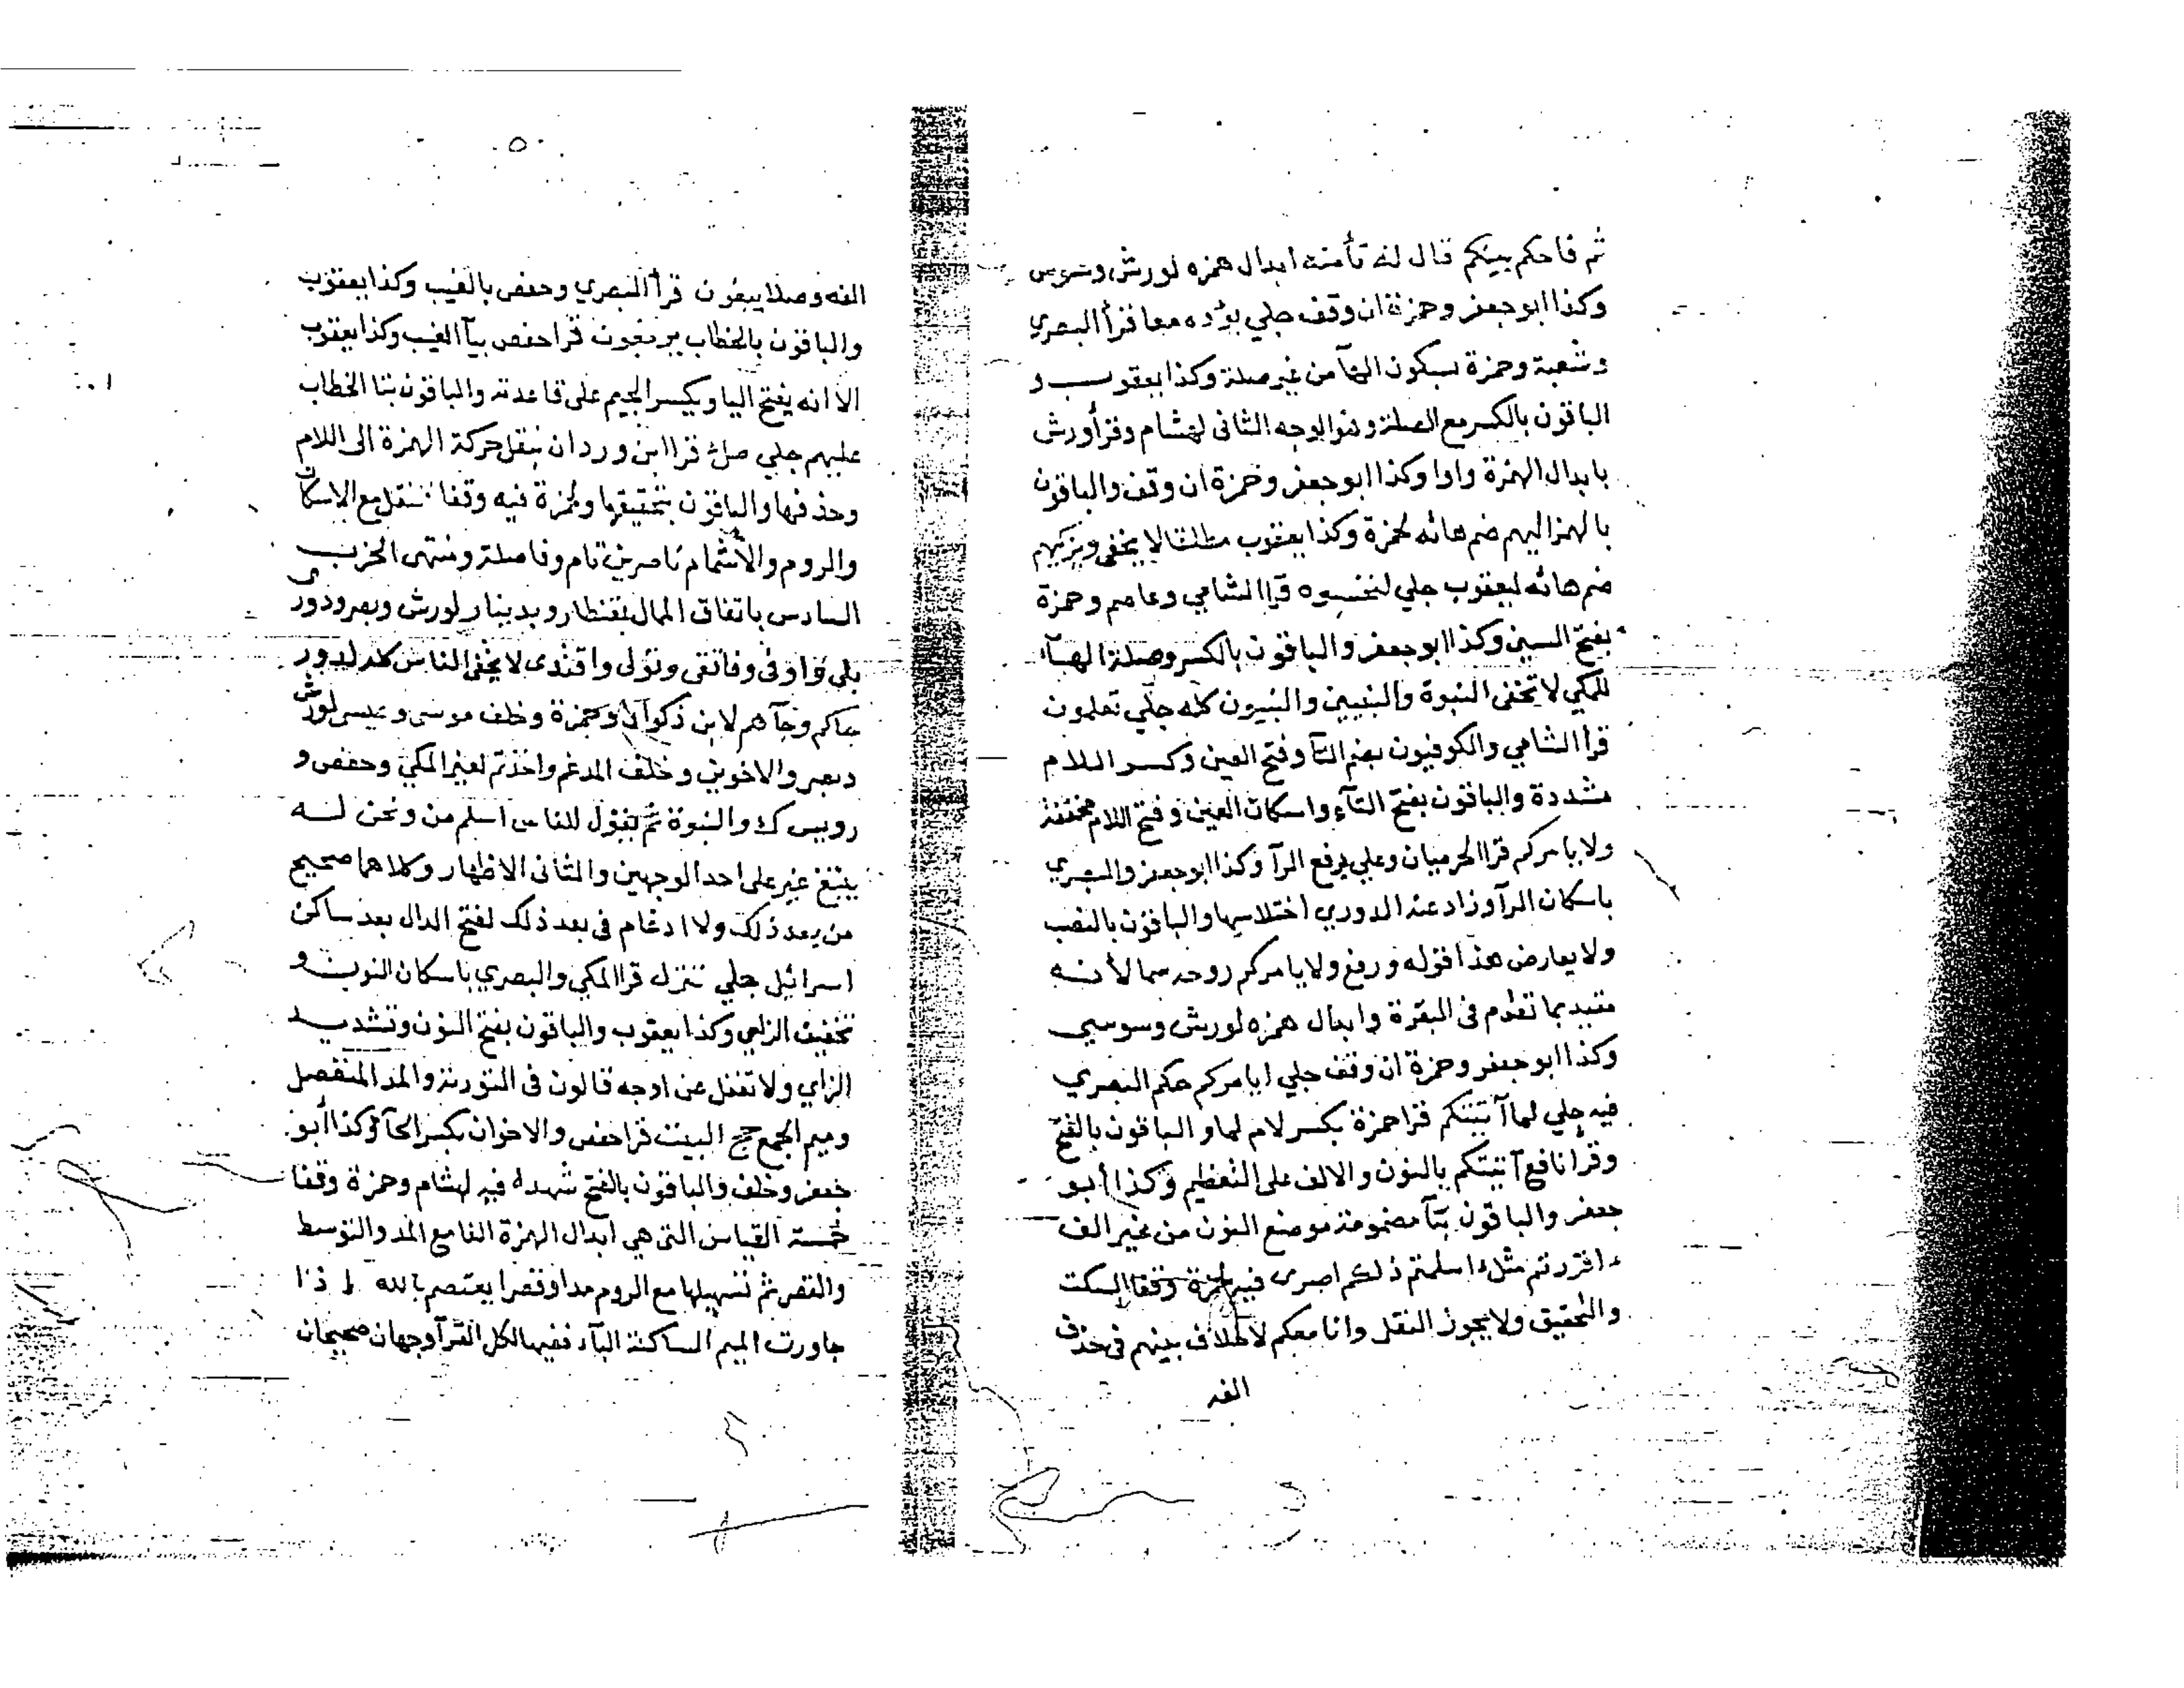 ثم فاحكم بينكم قال له تأمنه ابدال همزه لورش وسوسي
وكذا ابو جعفر وحمزة ان وقف جلي يؤده معا قرأ البصري
وشعبة وحمزة بسكون الهآ من غير صلة وكذا يعقوب و
الباقون بالكسر مع الصلة وهو الوجه الثاني لهشام وقرأ ورش
بابدال الهمزة واوا وكذا ابو جعفر وحمزة ان وقف والباقون
بالهمز اليهم ضم هائه لحمزة وكذا يعقوب مطلقا لا يخفى ويزكيهم
ضم هائه ليعقوب جلي لتحسبوه قرا الشامي وعاصم وحمزة
بفتح السين وكذا ابو جعفر والباقون بالكسر وصلة الهآء
للمكي لا تخفى النبوة والنبيين والنبيون كله جلي تعلمون
قرأ الشامي والكوفيون بضم التآ وفتح العين وكسر اللام
مشددة والباقون بفتح التآء واسكان العين وفتح اللام مخففة
ولا يامركم قرا الحرميان وعلي برفع الرآ وكذا ابو جعفر والبصري
باسكان الرآ وزاد عنه الدوري اختلاسها والباقون بالنصب
ولا يعارض هذا قوله ورفع ولا يامركم روحه سما لأنه
مقيد بما تقدم في البقرة وابدال همزه لورش وسوسي
وكذا ابو جعفر وحمزة ان وقف جلي ايامركم حكم البصري
فيه جلي لما آتيتكم قرا حمزة بكسر لام لما والباقون بالفتح
وقرأ نافع آتيتكم بالنون والالف على التعظيم وكذا أبو
جعفر والباقون بتآ مضمومة موضع النون من غير الف
ءاقررتم مثل ءاسلمتم ذلكم اصرى فيه لحمزة وقفا السكت
والتحقيق ولا يجوز النقل وانا معكم لا خلاف بينهم في حذف
الفه
الفه وصلا يبغون قرأ البصري وحفص بالغيب وكذا يعقوب
والباقون بالخطاب يرجعون قرا حفص بيآ الغيب وكذا يعقوب
الا انه يفتح اليا ويكسر الجيم على قاعدته والباقون بتا الخطاب
عليهم جلي ملء قرا ابن وردان بنقل حركة الهمزة الى اللام
وحذفها والباقون بتحقيقها ولحمزة فيه وقفا النقل مع الاسكان
والروم والأشمام ناصرين تام وفاصلة ومنتهى الحزب
السادس باتفاق الممال بقنطار وبدينار لورش وبصر ودوري
بلى واوفى وفاتقى وتولى وافتدى لا يخفى الناس كله لدور
جاكم وجآهم لابن ذكوان وحمزة وخلف موسى وعيسى لورش
وبصر والاخوين وخلف المدغم واخذتم لغير المكي وحفص و
رويس ك والنبوة ثم يقول للناس اسلم من ونحن له
يبتغ غير على احد الوجهين والثاني الاظهار وكلاهما صحيح
من بعد ذلك ولا ادغام في بعد ذلك لفتح الدال بعد ساكن
اسرائيل جلي تنزل قرا المكي والبصري باسكان النون و
تخفيف الزاي وكذا يعقوب والباقون بفتح النون وتشديد
الزاي ولا تغفل عن اوجه قالون في التورية والمد المنفصل
وميم الجمع حج البيت قرا حفص والاخوان بكسر الحآ وكذا أبو
جعفر وخلف والباقون بالفتح شهدآء فيه لهشام وحمزة وقفا
خمسة القياس التي هي ابدال الهمزة الفا مع المد والتوسط
والقصر ثم تسهيلها مع الروم مدا وقصرا يعتصم بالله اذا
جاورت الميم الساكنة البآء ففيها لكل القرآ وجهان صحيحان